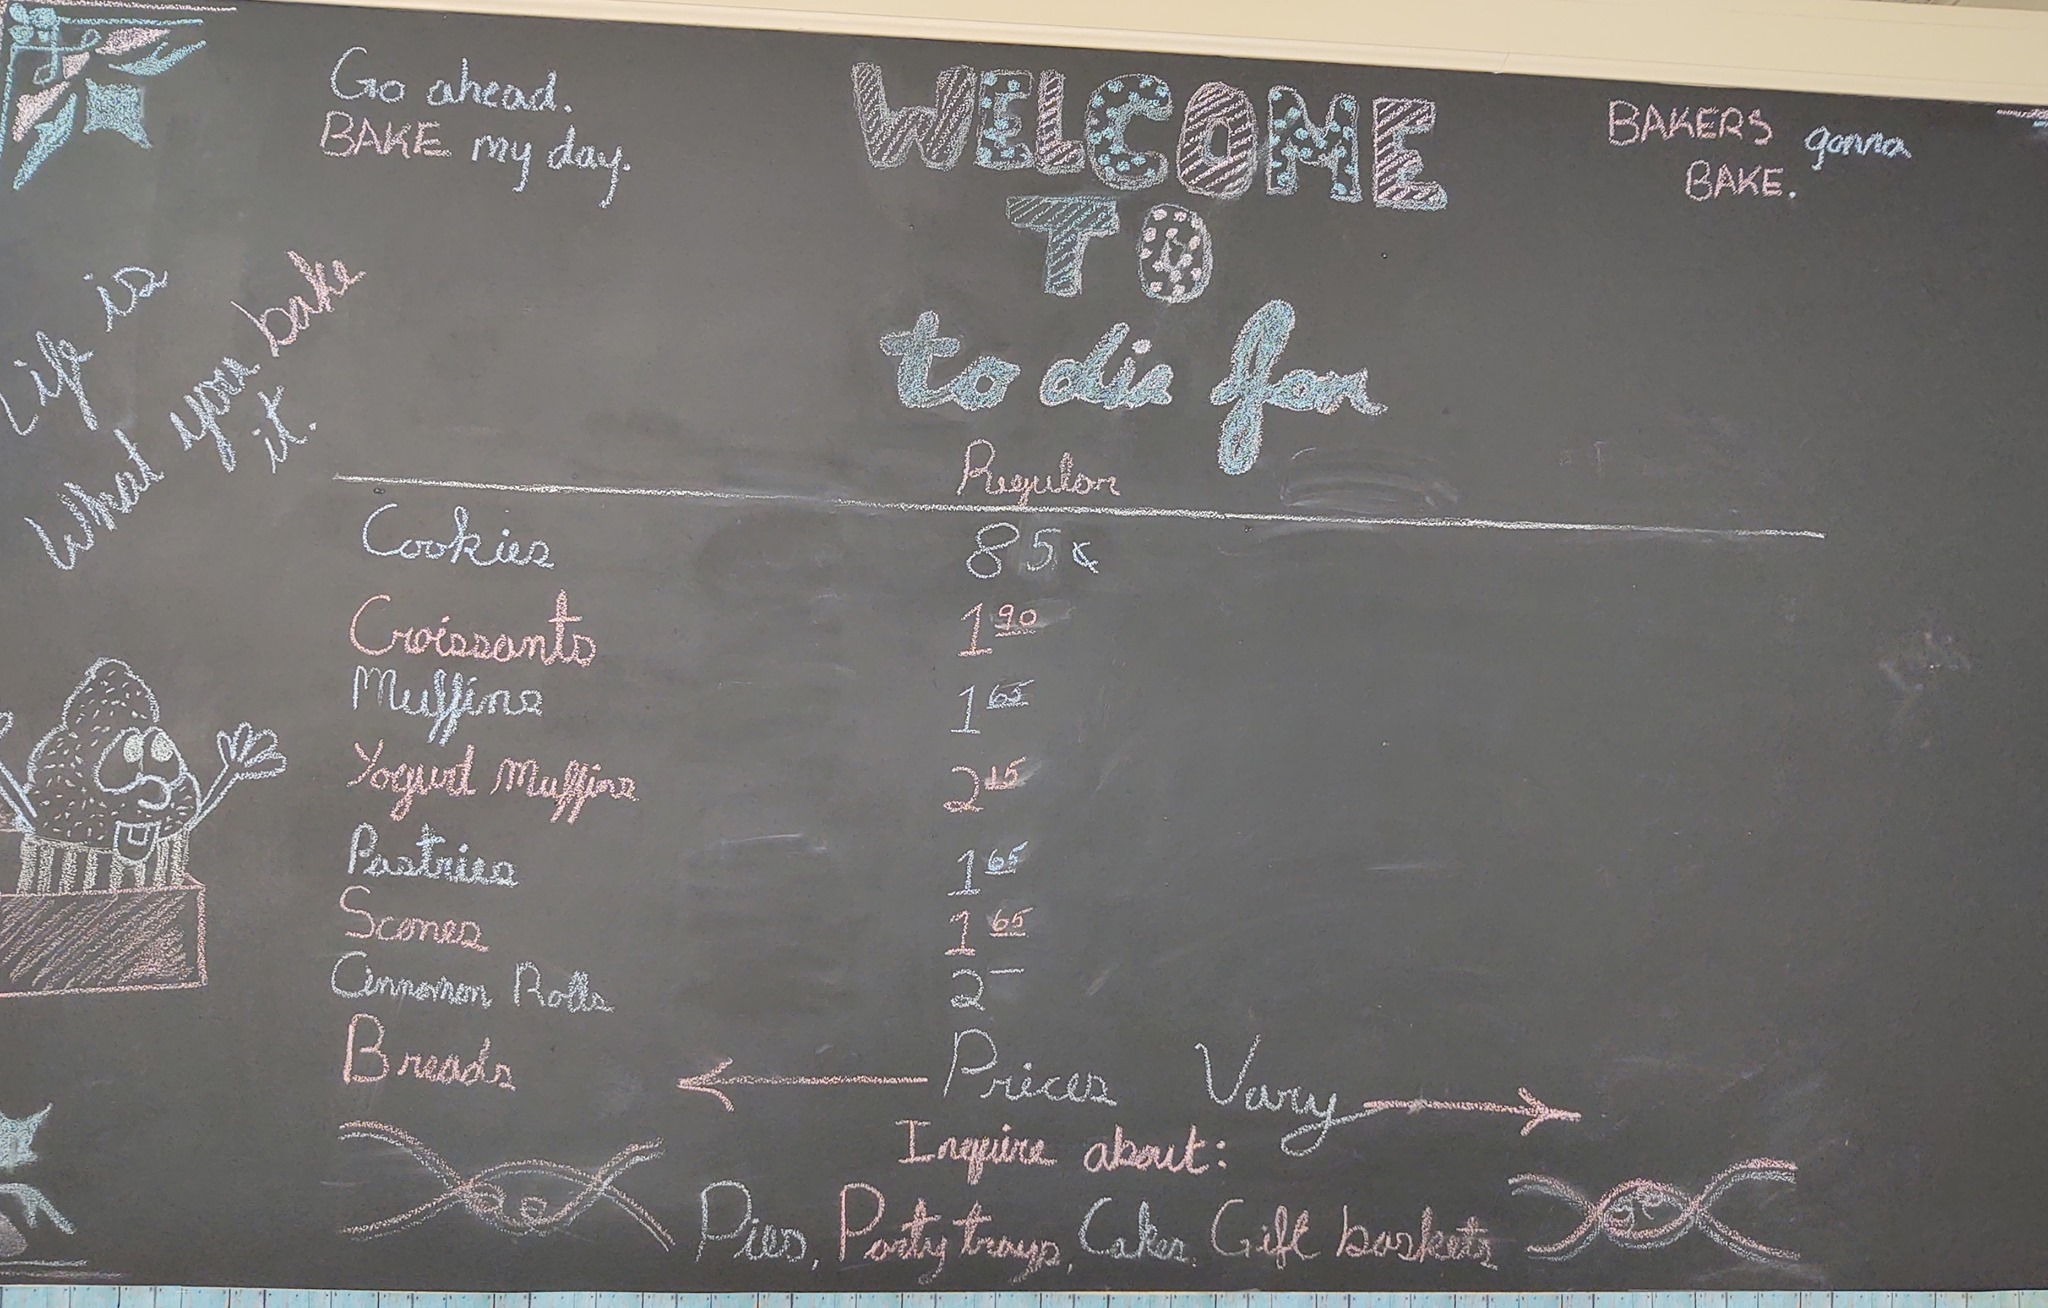 Go ahead.
BAKE my day.
WELCOME
TO
to die for
BAKERS gonna
BAKE.
Life is
What you bake
it.
Regular
Cookies 85¢
Croissants 1 90
Muffins 1 65
Yogurt Muffins 2 15
Pastries 1 65
Scones 1 65
Cinnamon Rolls 2 —
Breads ← Prices Vary →
Inquire about:
Pies, Party trays, Cakes, Gift baskets